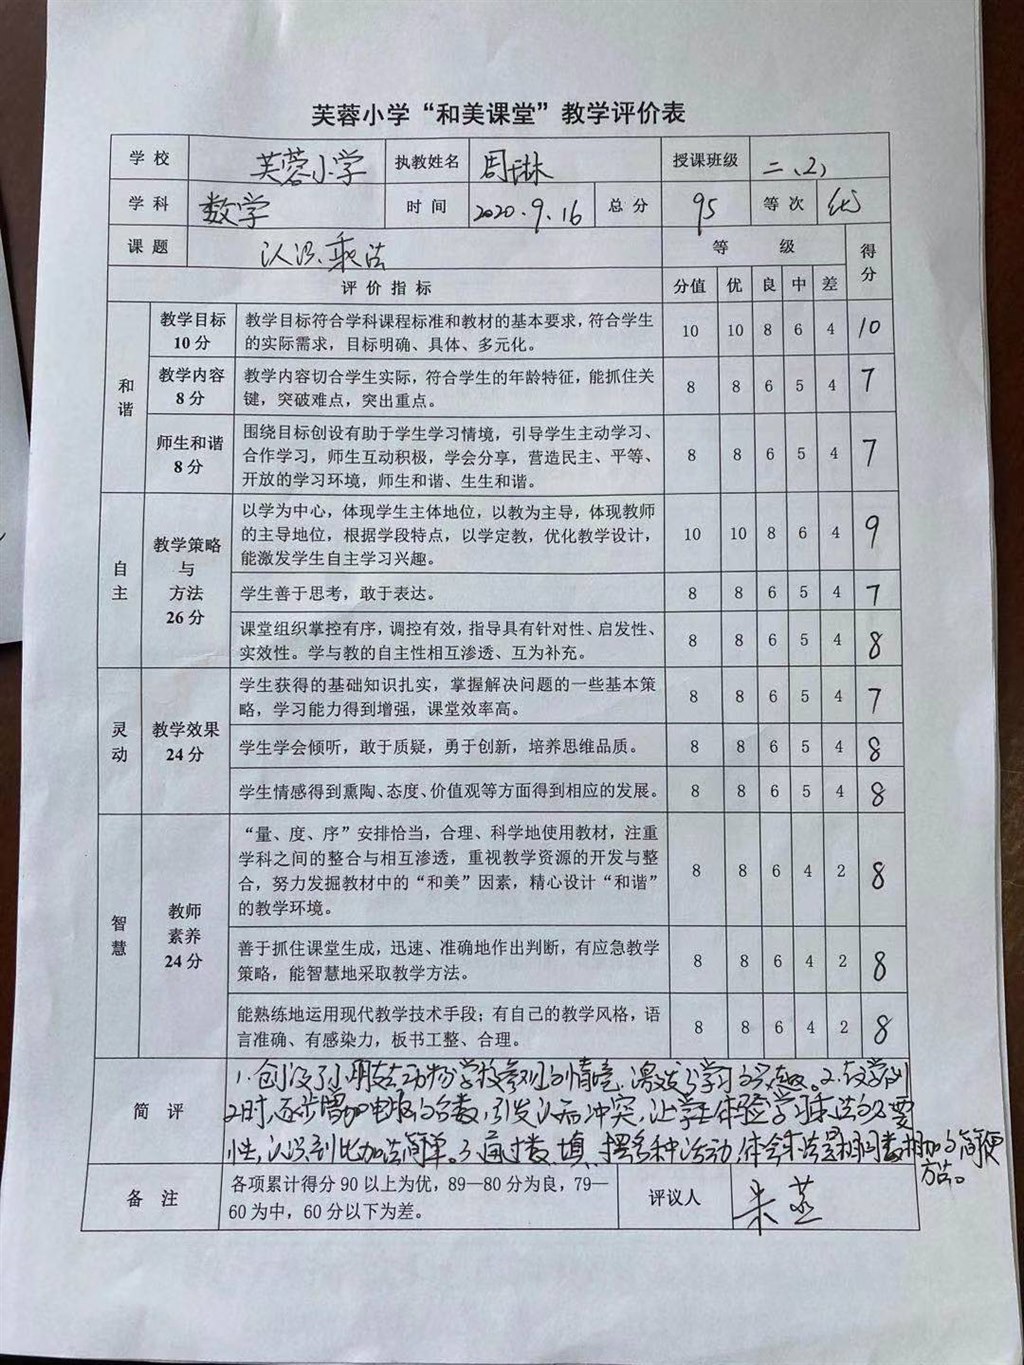 芙蓉小学“和美课堂”教学评价表
学校 芙蓉小学 执教姓名 周琳 授课班级 二、2)
学科 数学 时间 2020.9.16 总分 95 等次 优
课题 认识乘法 等 级 得分
评价指标 分值 优 良 中 差
和谐 教学目标 10分 教学目标符合学科课程标准和教材的基本要求，符合学生 10 10 8 6 4 10
的实际需求，目标明确、具体、多元化。
教学内容 8分 教学内容切合学生实际，符合学生的年龄特征，能抓住关 8 8 6 5 4 7
键，突破难点，突出重点。
师生和谐 8分 围绕目标创设有助于学生学习情境，引导学生主动学习、 8 8 6 5 4 7
合作学习，师生互动积极，学会分享，营造民主、平等、
开放的学习环境，师生和谐、生生和谐。
自主 教学策略与方法 26分 以学为中心，体现学生主体地位，以教为主导，体现教师 10 10 8 6 4 9
的主导地位，根据学段特点，以学定教，优化教学设计，
能激发学生自主学习兴趣。
学生善于思考，敢于表达。 8 8 6 5 4 7
课堂组织掌控有序，调控有效，指导具有针对性、启发性、 8 8 6 5 4 8
实效性。学与教的自主性相互渗透、互为补充。
灵动 教学效果 24分 学生获得的基础知识扎实，掌握解决问题的一些基本策 8 8 6 5 4 7
略，学习能力得到增强，课堂效率高。
学生学会倾听，敢于质疑，勇于创新，培养思维品质。 8 8 6 5 4 8
学生情感得到熏陶、态度、价值观等方面得到相应的发展。 8 8 6 5 4 8
智慧 教师素养 24分 “量、度、序”安排恰当，合理、科学地使用教材，注重 8 8 6 4 2 8
学科之间的整合与相互渗透，重视教学资源的开发与整
合，努力发掘教材中的“和美”因素，精心设计“和谐”
的教学环境。
善于抓住课堂生成，迅速、准确地作出判断，有应急教学 8 8 6 4 2 8
策略，能智慧地采取教学方法。
能熟练地运用现代教学技术手段；有自己的教学风格，语 8 8 6 4 2 8
言准确、有感染力，板书工整、合理。
简评 1.创设了小朋友去动物学校参观的情境，激发了学习的兴趣。2.教学例
2时，逐步增加电脑的台数，引发认知冲突，让学生体验学习乘法的必要
性，认识到比加法简单。3.通过数、填、摆多种活动，体会乘法是相同数相加的简便
方法。
备注 各项累计得分90以上为优，89—80分为良，79—
60为中，60分以下为差。 评议人 朱燕